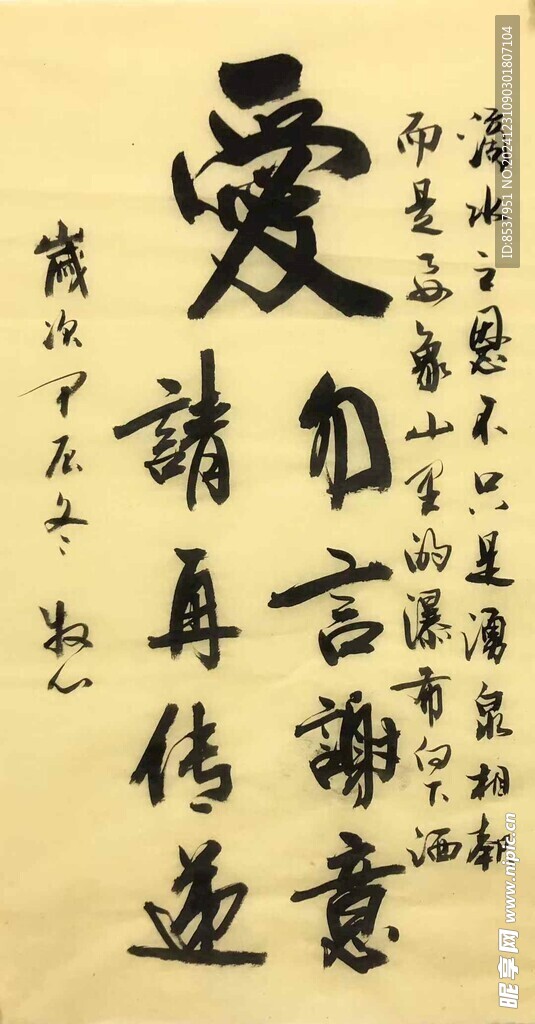 滴水之恩不只是湧泉相報
而是要象山里的瀑布向下洒
愛
勿言謝意
請再传递
歲次甲辰冬 牧心
ID:8537951 NO:20241231090301807104
昵享网 www.nipic.cn